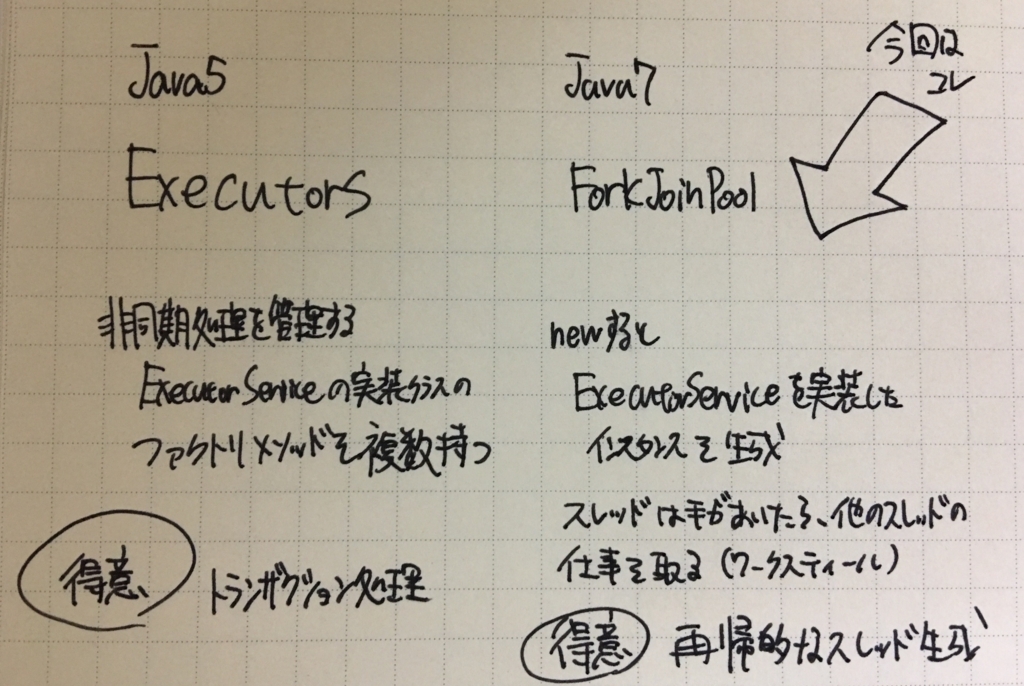 Java5
Executors
非同期処理を管理する
ExecutorServiceの実装クラスの
ファクトリメソッドを複数持つ
得意
トランザクション処理
Java7
今回は
コレ
ForkJoinPool
newすると
ExecutorServiceを実装した
インスタンスを生成
スレッドは手があいたら、他のスレッドの
仕事を取る(ワークスティール)
得意
再帰的なスレッド生成